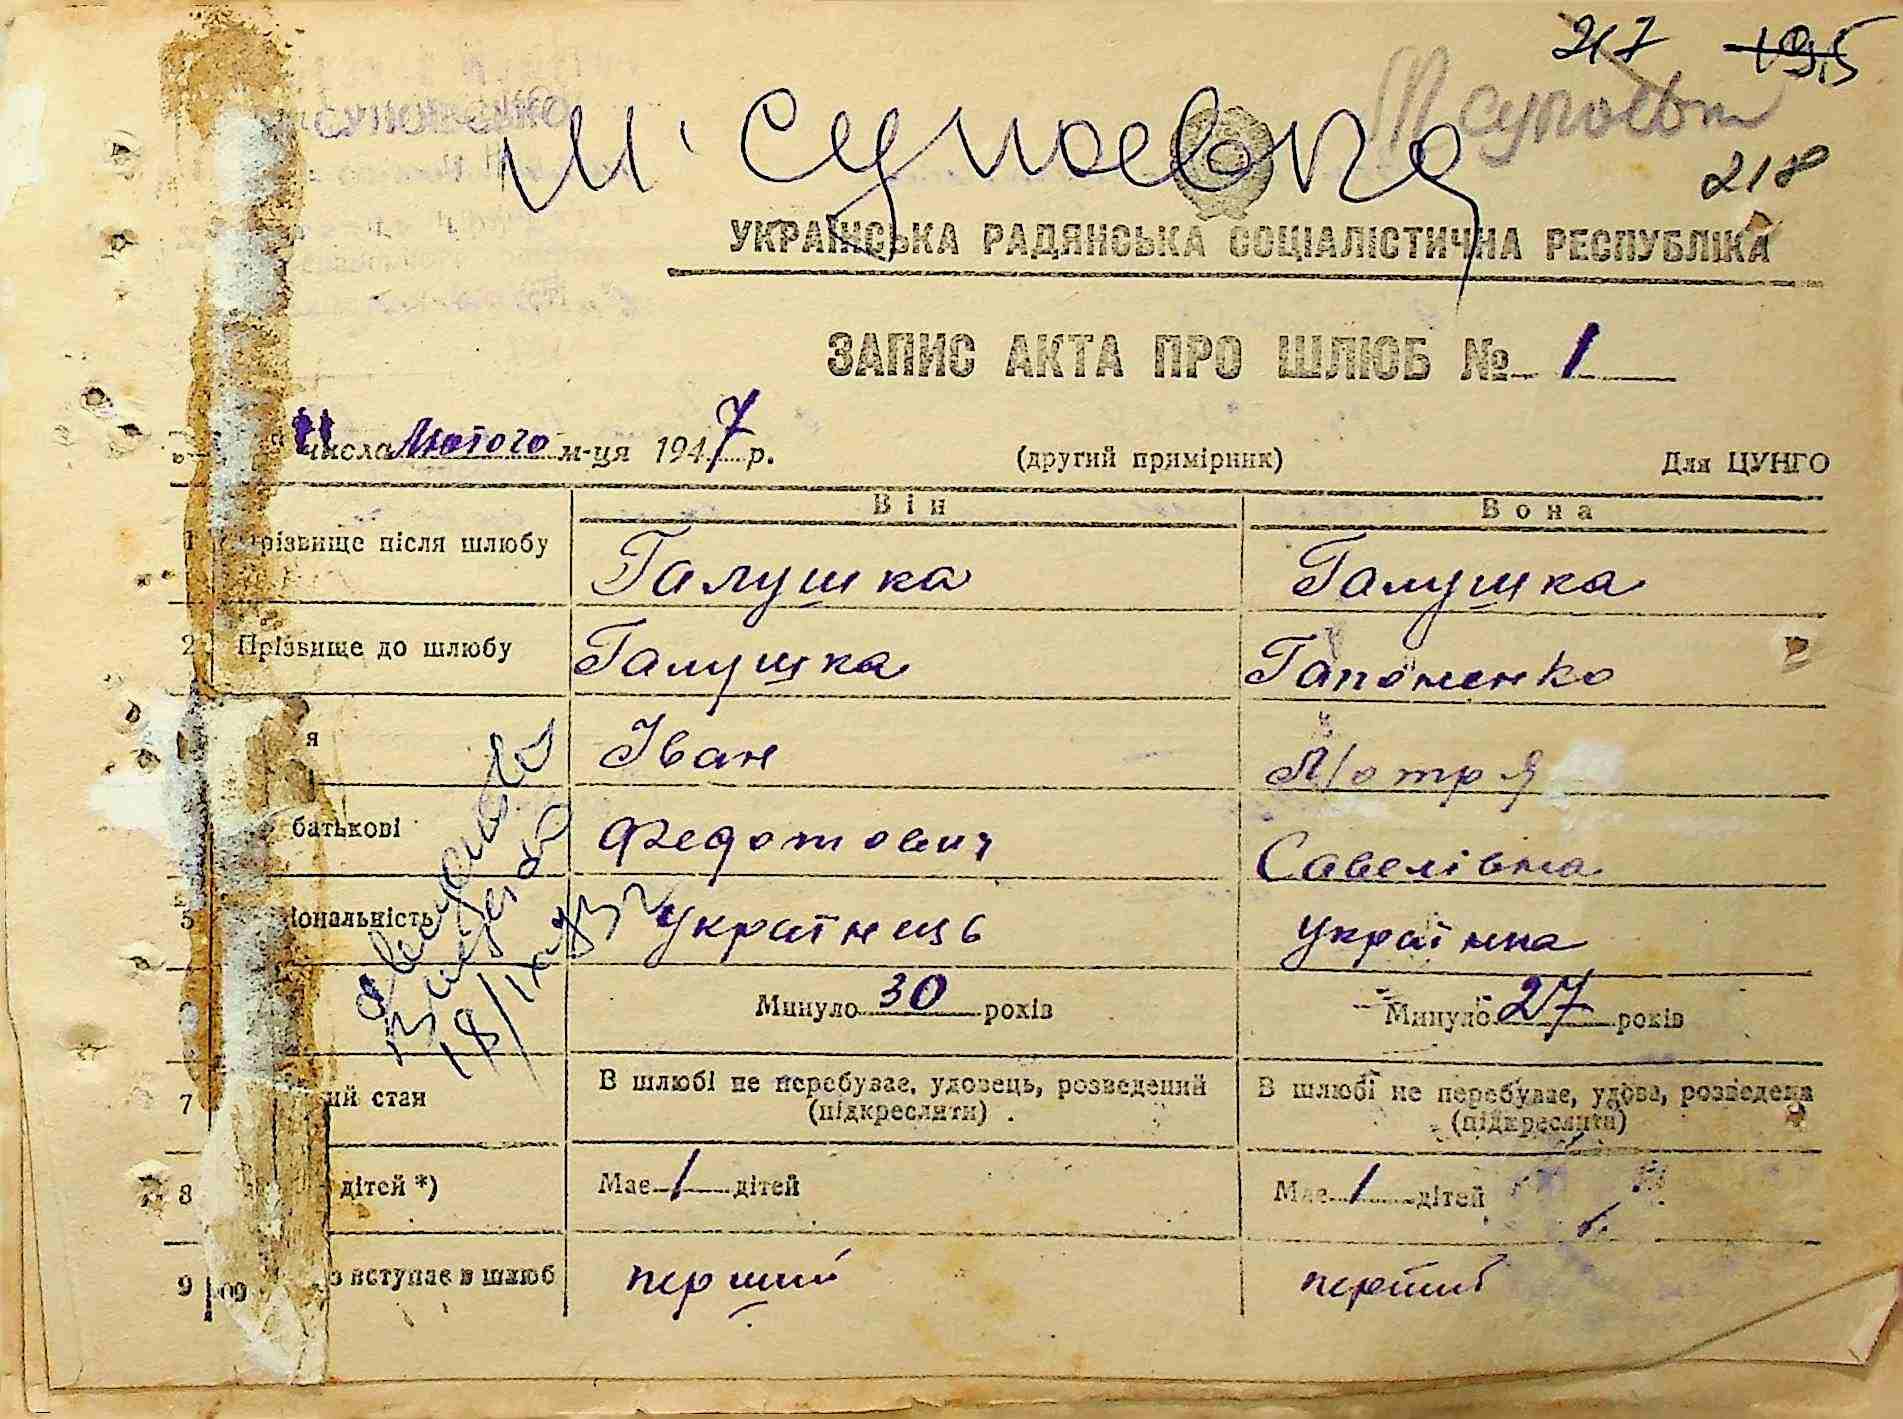 217 195
218
УКРАЇНСЬКА РАДЯНСЬКА СОЦІАЛІСТИЧНА РЕСПУБЛІКА
ЗАПИС АКТА ПРО ШЛЮБ № 1
11 числа Лютого м-ця 1947 р. (другий примірник) Для ЦУНГО
Він Вона
1 Прізвище після шлюбу Галушка Галушка
2 Прізвище до шлюбу Галушка Гапоненко
Іван Мотря
батькові Федотович Савелівна
5 українець українка
Минуло 30 років Минуло 27 років
7 стан В шлюбі не перебуває, удовець, розведений (підкреслити) В шлюбі не перебуває, удова, розведена (підкреслити)
8 дітей *) Має 1 дітей Має 1 дітей
9 вступає в шлюб перший перший